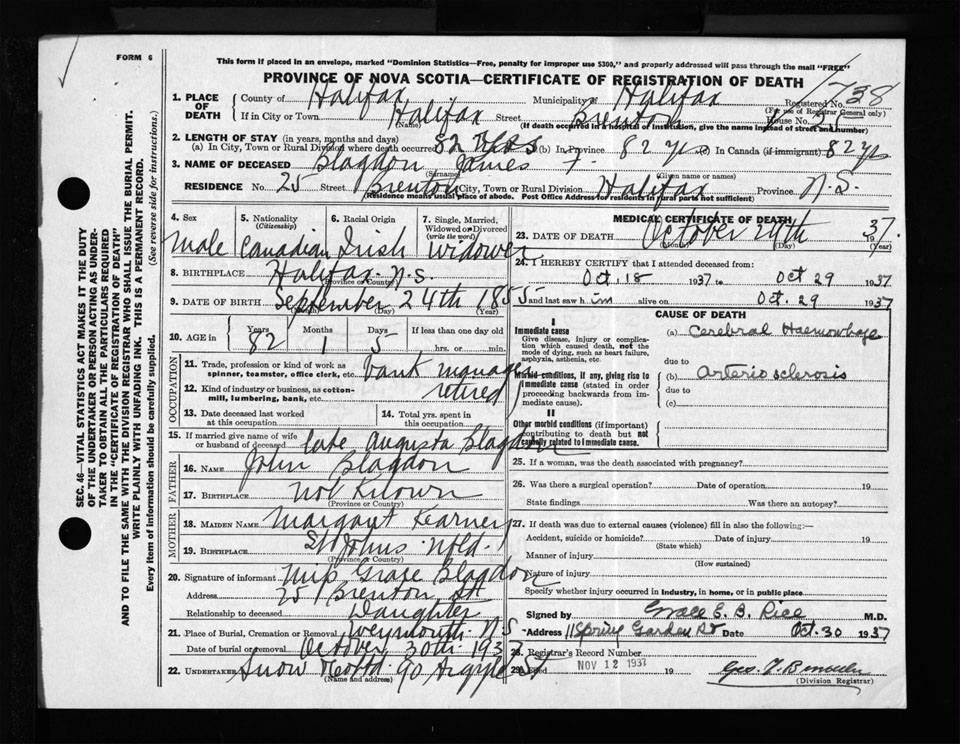 FORM 6
This form if placed in an envelope, marked "Dominion Statistics—Free, penalty for improper use $300," and properly addressed will pass through the mail "FREE"
PROVINCE OF NOVA SCOTIA—CERTIFICATE OF REGISTRATION OF DEATH
SEC. 46—VITAL STATISTICS ACT MAKES IT THE DUTY
OF THE UNDERTAKER OR PERSON ACTING AS UNDER-
TAKER TO OBTAIN ALL THE PARTICULARS REQUIRED
IN THE "CERTIFICATE OF REGISTRATION OF DEATH"
AND TO FILE THE SAME WITH THE DIVISION REGISTRAR WHO SHALL ISSUE THE BURIAL PERMIT.
WRITE PLAINLY WITH UNFADING INK. THIS IS A PERMANENT RECORD.
Every item of information should be carefully supplied. (See reverse side for instructions.)
1. PLACE OF DEATH County of Halifax Municipality of Halifax Registered No. 738
(For use of Registrar General only)
If in City or Town Halifax Street Brenton House No. 25
(Name) (If death occurred in a hospital or institution, give the name instead of street and number)
2. LENGTH OF STAY (in years, months and days)
(a) In City, Town or Rural Division where death occurred 82 yrs (b) In Province 82 yrs (c) In Canada (if immigrant) 82 yrs
3. NAME OF DECEASED Blagdon James F.
(Surname) (Given name or names)
RESIDENCE No. 25 Street Brenton City, Town or Rural Division Halifax Province N.S.
(Residence means usual place of abode. Post Office Address for residents in rural parts not sufficient)
4. Sex 5. Nationality (Citizenship) 6. Racial Origin 7. Single, Married, Widowed or Divorced (write the word)
Male Canadian Irish Widower
8. BIRTHPLACE Halifax N.S.
(Province or Country)
9. DATE OF BIRTH September 24th 1855
(Month) (Day)
10. AGE in Years Months Days If less than one day old
82 1 5 hrs. or min.
OCCUPATION
11. Trade, profession or kind of work as spinner, teamster, office clerk, etc. bank manager
12. Kind of industry or business, as cotton-mill, lumbering, bank, etc. retired
13. Date deceased last worked at this occupation
14. Total yrs. spent in this occupation
15. If married give name of wife or husband of deceased late Augusta Blagdon
FATHER
16. NAME John Blagdon
17. BIRTHPLACE not Known
(Province or Country)
MOTHER
18. MAIDEN NAME Margaut Kearney
19. BIRTHPLACE St Johns Nfld.
(Province or Country)
20. Signature of informant Miss Grace Blagdon
Address 25 Brenton St
Relationship to deceased Daughter
21. Place of Burial, Cremation or Removal Weymouth N S
Date of burial or removal October 30th 1937
22. UNDERTAKER Snow & Co Ltd 90 Argyle St
(Name and address)
MEDICAL CERTIFICATE OF DEATH
23. DATE OF DEATH October 29th 1937
(Month) (Day) (Year)
24. I HEREBY CERTIFY that I attended deceased from:
Oct. 18 1937 to Oct 29 1937
and last saw him alive on Oct. 29 1937
CAUSE OF DEATH
I
Immediate cause
Give disease, injury or complication which caused death, not the mode of dying, such as heart failure, asphyxia, asthenia, etc.
(a) Cerebral Haemorrhage
due to
Morbid conditions, if any, giving rise to immediate cause (stated in order proceeding backwards from immediate cause).
(b) Arterio sclerosis
due to
(c)
II
Other morbid conditions (if important) contributing to death but not causally related to immediate cause.
25. If a woman, was the death associated with pregnancy?
26. Was there a surgical operation? Date of operation 19
State findings Was there an autopsy?
27. If death was due to external causes (violence) fill in also the following:—
Accident, suicide or homicide? Date of injury 19
(State which)
Manner of injury
(How sustained)
Nature of injury
Specify whether injury occurred in industry, in home, or in public place
Signed by Grace E. B. Rice M.D.
Address 11 Spring Garden Rd Date Oct. 30 1937
28. Registrar's Record Number
29. Filed NOV 12 1937 19
(Division Registrar)